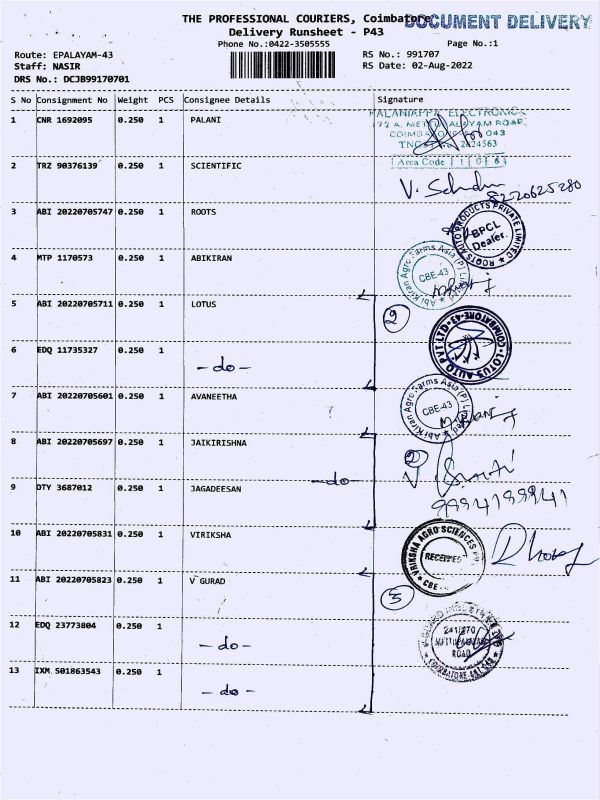 THE PROFESSIONAL COURIERS, Coimbatore
DOCUMENT DELIVERY
Delivery Runsheet - P43
Phone No.:0422-3505555
Page No.:1
Route: EPALAYAM-43
RS No.: 991707
Staff: NASIR
RS Date: 02-Aug-2022
DRS No.: DCJB99170701
S No Consignment No Weight PCS Consignee Details Signature
1 CNR 1692095 0.250 1 PALANI
PALANIAPPA ELECTRONICS
COIMBATORE 043
Area Code 1 0 6
2 TRZ 90376139 0.250 1 SCIENTIFIC
8220625280
3 ABI 20220705747 0.250 1 ROOTS
ROOTS AUTO PRODUCTS PRIVATE LIMITED
BPCL
Dealer.
4 MTP 1170573 0.250 1 ABIKIRAN
Abi Kiran Agro Farms Asia (P) Limited
CBE-43
5 ABI 20220705711 0.250 1 LOTUS
2
LOTUS AUTO PVT LTD COIMBATORE-43
6 EDQ 11735327 0.250 1
-do-
7 ABI 20220705601 0.250 1 AVANEETHA
Abi Kiran Agro Farms Asia (P) Limited
CBE-43
8 ABI 20220705697 0.250 1 JAIKIRISHNA
2
9 OTY 3687012 0.250 1 JAGADEESAN
-do-
9994199941
10 ABI 20220705831 0.250 1 VIRIKSHA
VRIKSHA AGRO SCIENCES
RECEIVED
CBE
11 ABI 20220705823 0.250 1 V GURAD
3
12 EDQ 23773804 0.250 1
-do-
ROAD
COIMBATORE-641 043
13 IXM 501863543 0.250 1
-do-